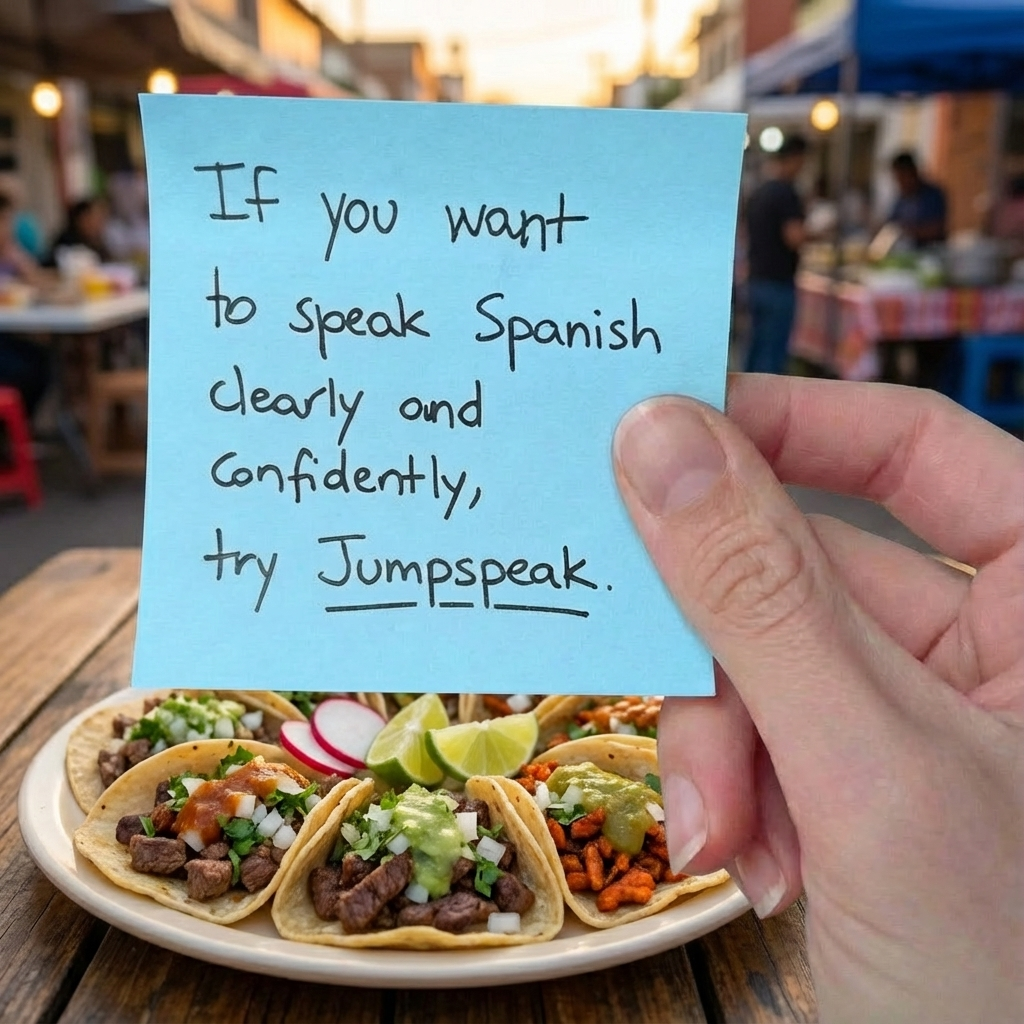 If you want
to speak Spanish
clearly and
confidently,
try Jumpspeak.